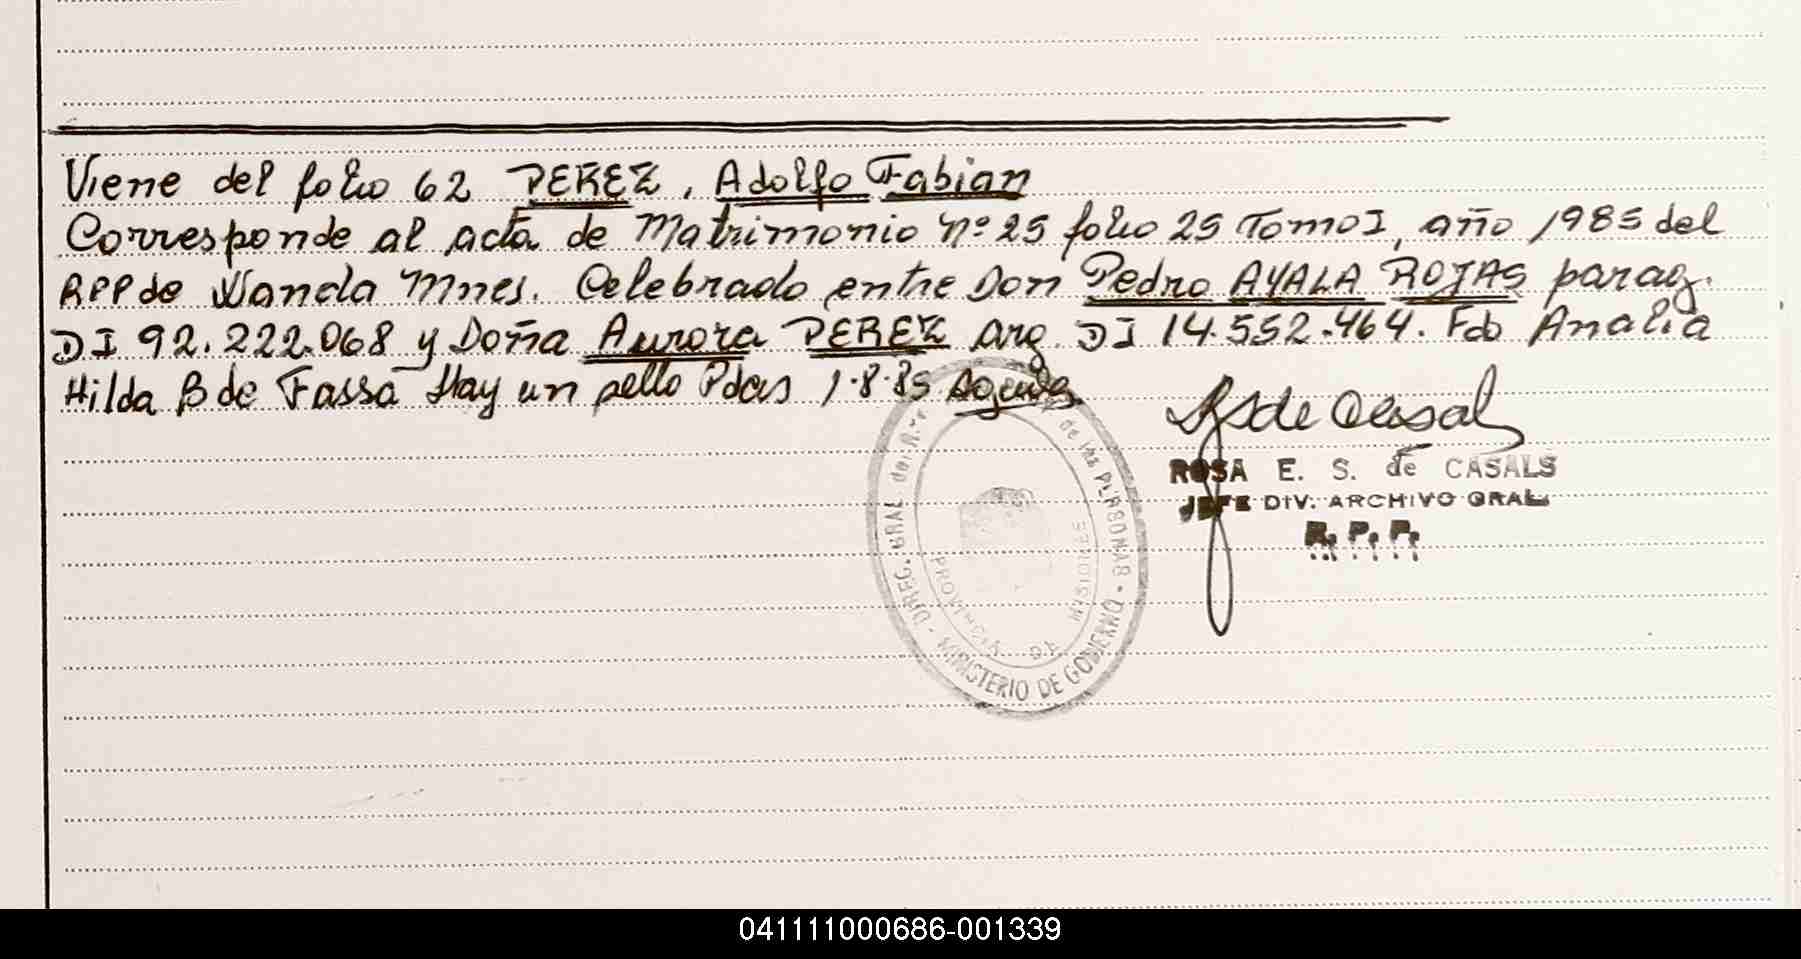 Viene del folio 62 PEREZ, Adolfo Fabian
Corresponde al acta de Matrimonio Nº 25 folio 25 Tomo I, año 1985 del
RPP de Wanda Mnes. Celebrado entre Don Pedro AYALA ROJAS parag.
DI 92.222.068 y Doña Aurora PEREZ arg. DI 14.552.464. Fdo Analia
Hilda B de Fassa Hay un sello Pdas 1.8.85
ROSA E. S. de CASALS
JEFE DIV. ARCHIVO GRAL
R. P. P.
DIREC. GRAL del R. de las PERSONAS - MINISTERIO DE GOBIERNO -
PROVINCIA DE MISIONES
041111000686-001339